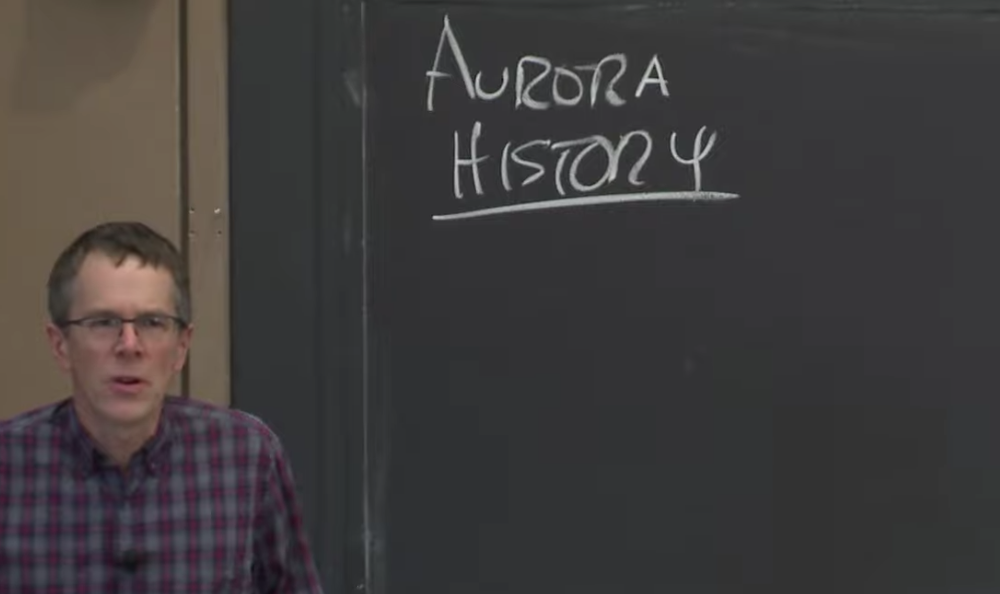 AURORA
HISTORY